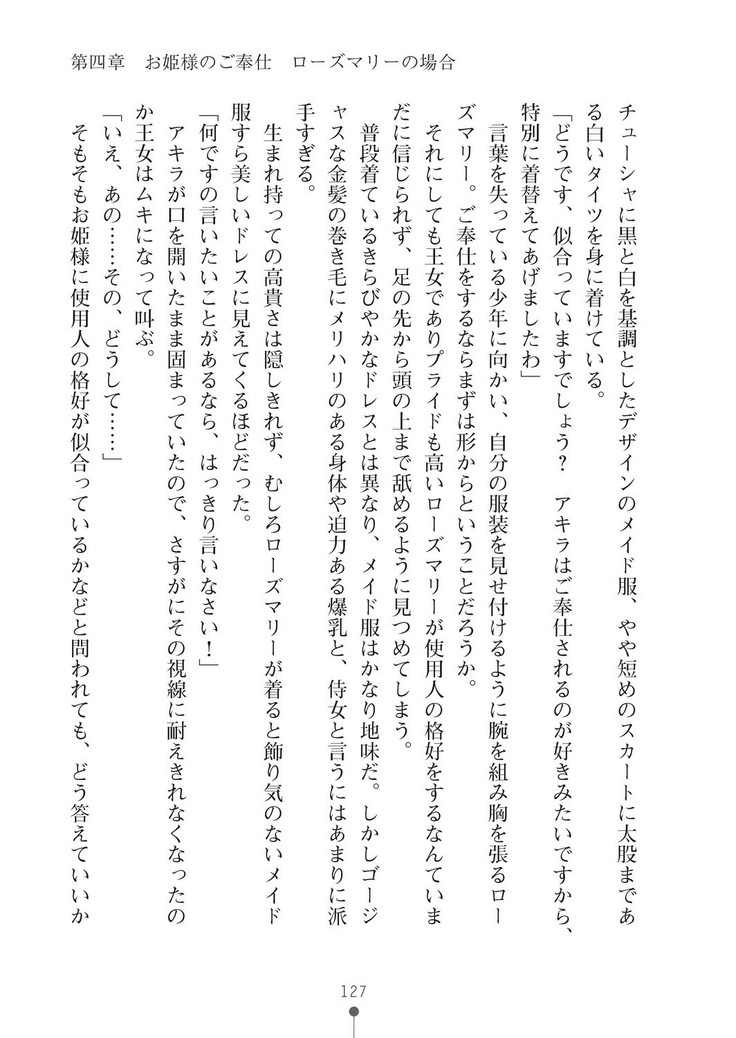 第四章　お姫様のご奉仕　ローズマリーの場合
チューシャに黒と白を基調としたデザインのメイド服、やや短めのスカートに太股まであ
る白いタイツを身に着けている。
「どうです、似合っていますでしょう？　アキラはご奉仕されるのが好きみたいですから、
特別に着替えてあげましたわ」
言葉を失っている少年に向かい、自分の服装を見せ付けるように腕を組み胸を張るロー
ズマリー。ご奉仕をするならまずは形からということだろうか。
それにしても王女でありプライドも高いローズマリーが使用人の格好をするなんていま
だに信じられず、足の先から頭の上まで舐めるように見つめてしまう。
普段着ているきらびやかなドレスとは異なり、メイド服はかなり地味だ。しかしゴージ
ャスな金髪の巻き毛にメリハリのある身体や迫力ある爆乳と、侍女と言うにはあまりに派
手すぎる。
生まれ持っての高貴さは隠しきれず、むしろローズマリーが着ると飾り気のないメイド
服すら美しいドレスに見えてくるほどだった。
「何ですの言いたいことがあるなら、はっきり言いなさい！」
アキラが口を開いたまま固まっていたので、さすがにその視線に耐えきれなくなったの
か王女はムキになって叫ぶ。
「いえ、あの……その、どうして……」
そもそもお姫様に使用人の格好が似合っているかなどと問われても、どう答えていいか
127